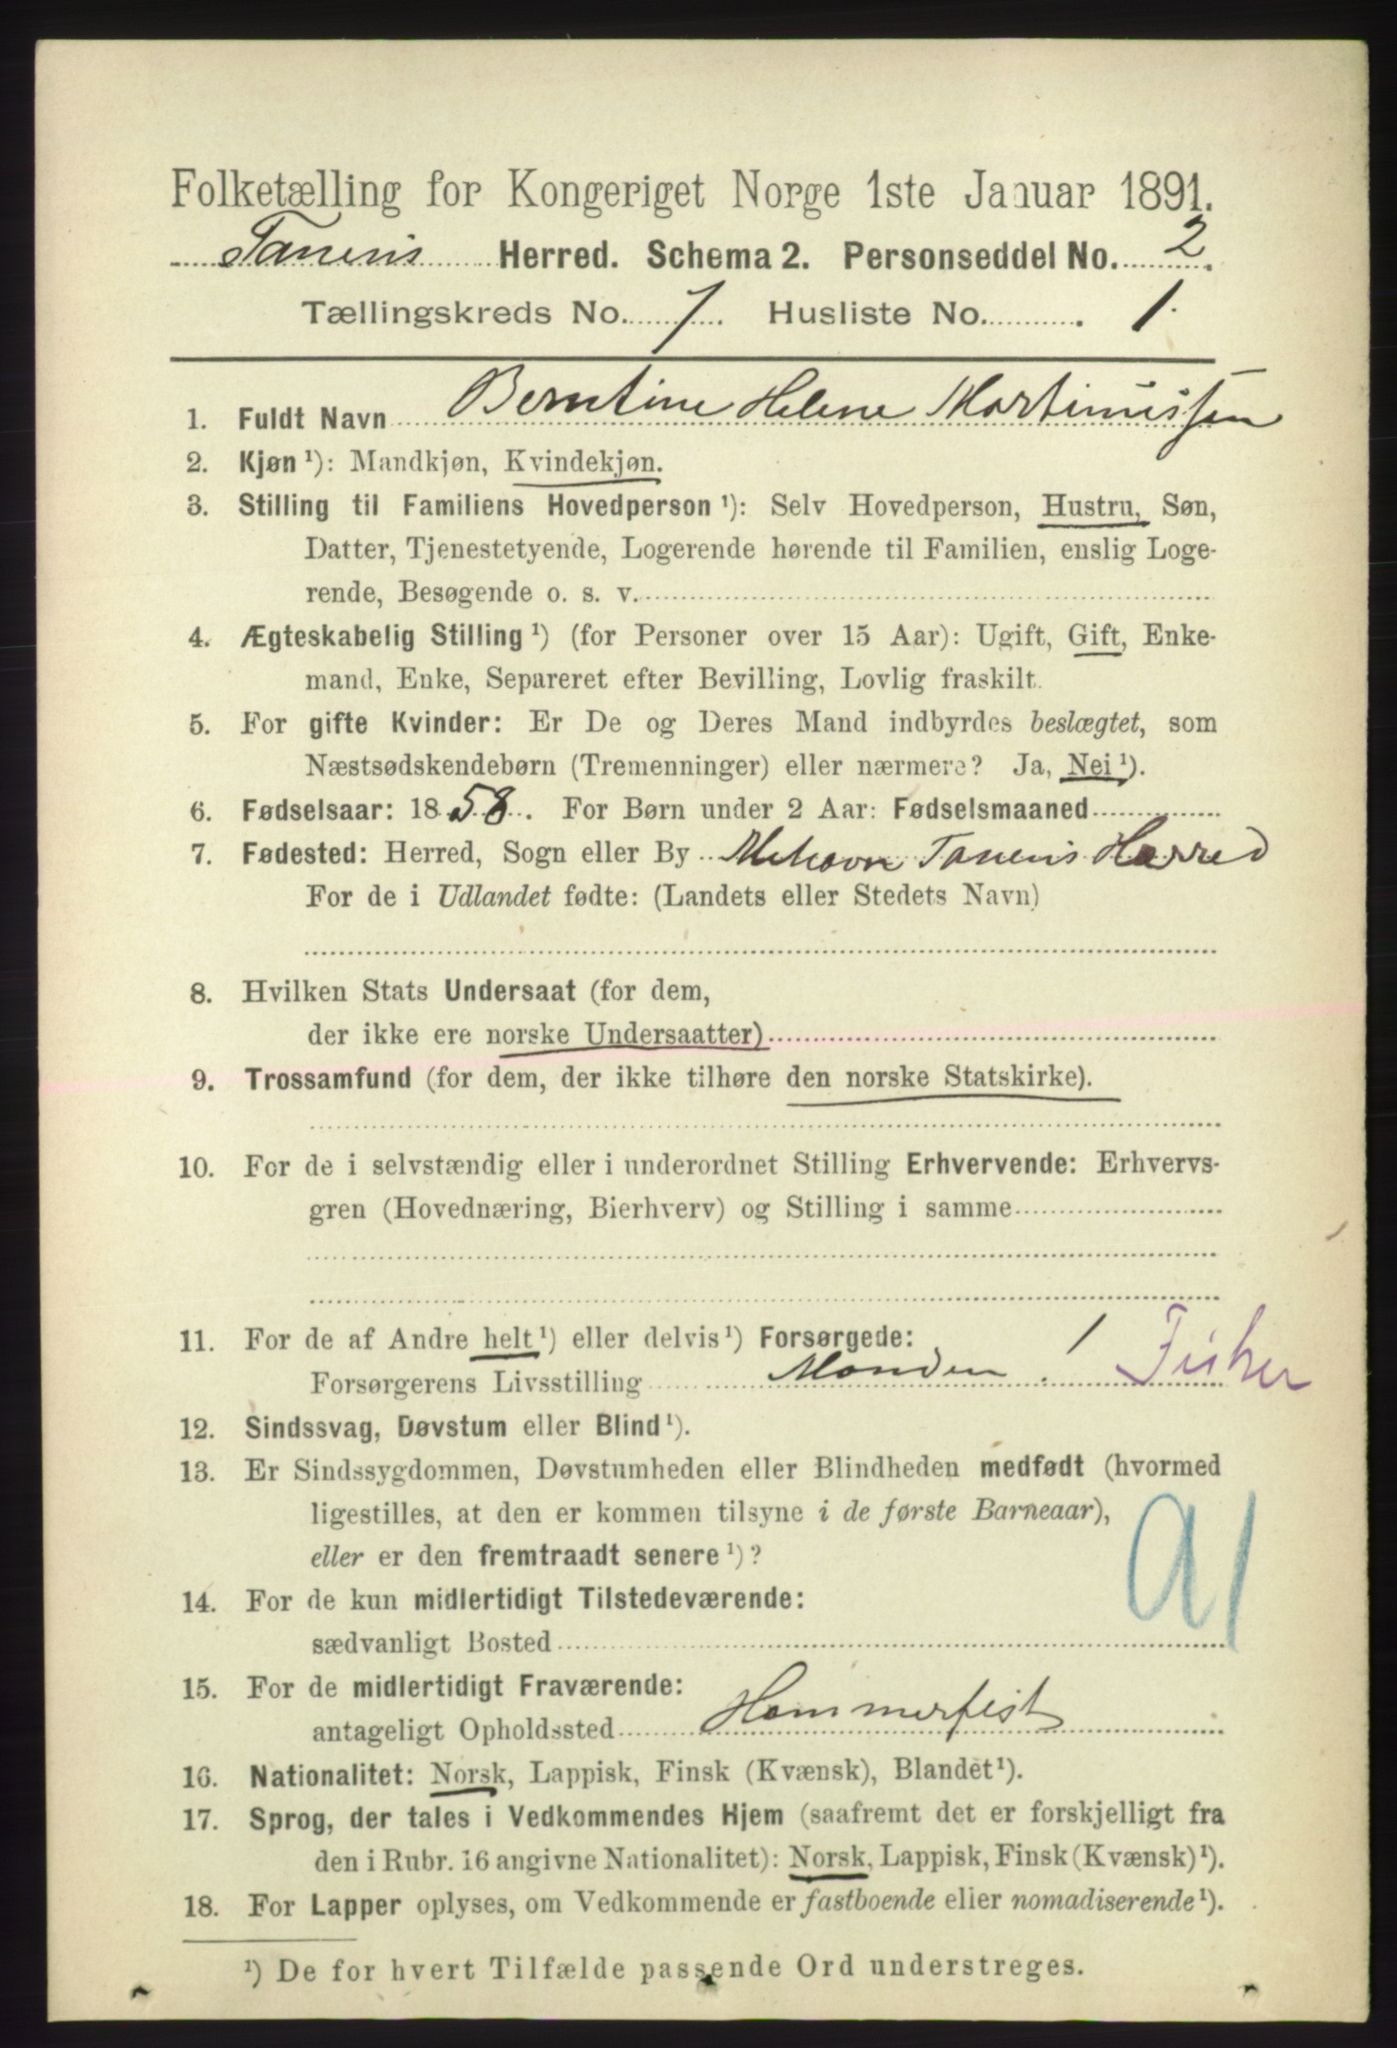 Folketælling for Kongeriget Norge 1ste Januar 1891.
Tanens Herred. Schema 2. Personseddel No. 2.
Tællingskreds No. 7. Husliste No. 1.
1. Fuldt Navn Berntine Helene Martinussen
2. Kjøn ¹): Mandkjøn, Kvindekjøn.
3. Stilling til Familiens Hovedperson ¹): Selv Hovedperson, Hustru, Søn,
Datter, Tjenestetyende, Logerende hørende til Familien, enslig Loge-
rende, Besøgende o. s. v.
4. Ægteskabelig Stilling ¹) (for Personer over 15 Aar): Ugift, Gift, Enke-
mand, Enke, Separeret efter Bevilling, Lovlig fraskilt.
5. For gifte Kvinder: Er De og Deres Mand indbyrdes beslægtet, som
Næstsødskendebørn (Tremenninger) eller nærmere? Ja, Nei ¹).
6. Fødselsaar: 1858. For Børn under 2 Aar: Fødselsmaaned
7. Fødested: Herred, Sogn eller By Mehavn Tanens Herred
For de i Udlandet fødte: (Landets eller Stedets Navn)
8. Hvilken Stats Undersaat (for dem,
der ikke ere norske Undersaatter)
9. Trossamfund (for dem, der ikke tilhøre den norske Statskirke).
10. For de i selvstændig eller i underordnet Stilling Erhvervende: Erhvervs-
gren (Hovednæring, Bierhverv) og Stilling i samme
11. For de af Andre helt ¹) eller delvis ¹) Forsørgede:
Forsørgerens Livsstilling Manden ! Fisker
12. Sindssvag, Døvstum eller Blind ¹).
13. Er Sindssygdommen, Døvstumheden eller Blindheden medfødt (hvormed
ligestilles, at den er kommen tilsyne i de første Barneaar),
eller er den fremtraadt senere ¹)?
14. For de kun midlertidigt Tilstedeværende:
sædvanligt Bosted
15. For de midlertidigt Fraværende:
antageligt Opholdssted Hammerfest
16. Nationalitet: Norsk, Lappisk, Finsk (Kvænsk), Blandet ¹).
17. Sprog, der tales i Vedkommendes Hjem (saafremt det er forskjelligt fra
den i Rubr. 16 angivne Nationalitet): Norsk, Lappisk, Finsk (Kvænsk) ¹).
18. For Lapper oplyses, om Vedkommende er fastboende eller nomadiserende ¹).
¹) De for hvert Tilfælde passende Ord understreges.